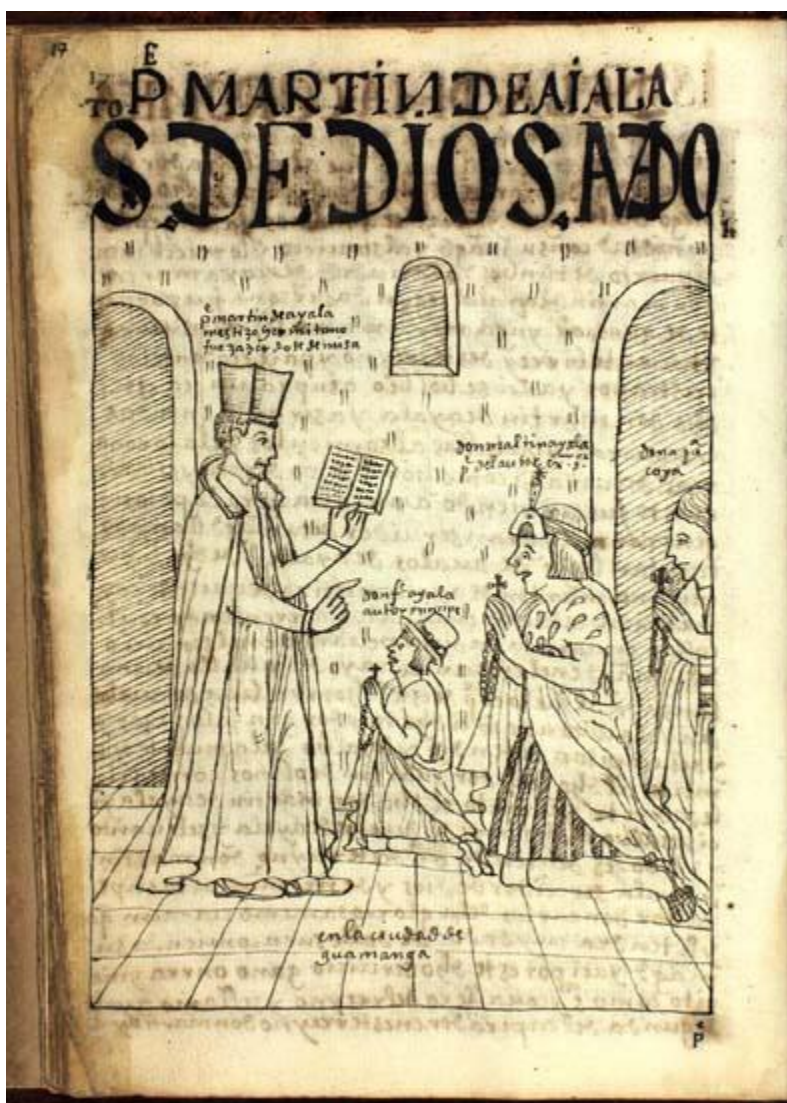 17
E
P MARTÍN DE AÍALA
TO
S. DE DÍOS. A𝐌ADO
p martin de ayala
mestizo
fue sazerdote de misa
don martin ayala
p del autor
coya
don f ayala
autor prinçipe
en la ciudad de
guamanga
P